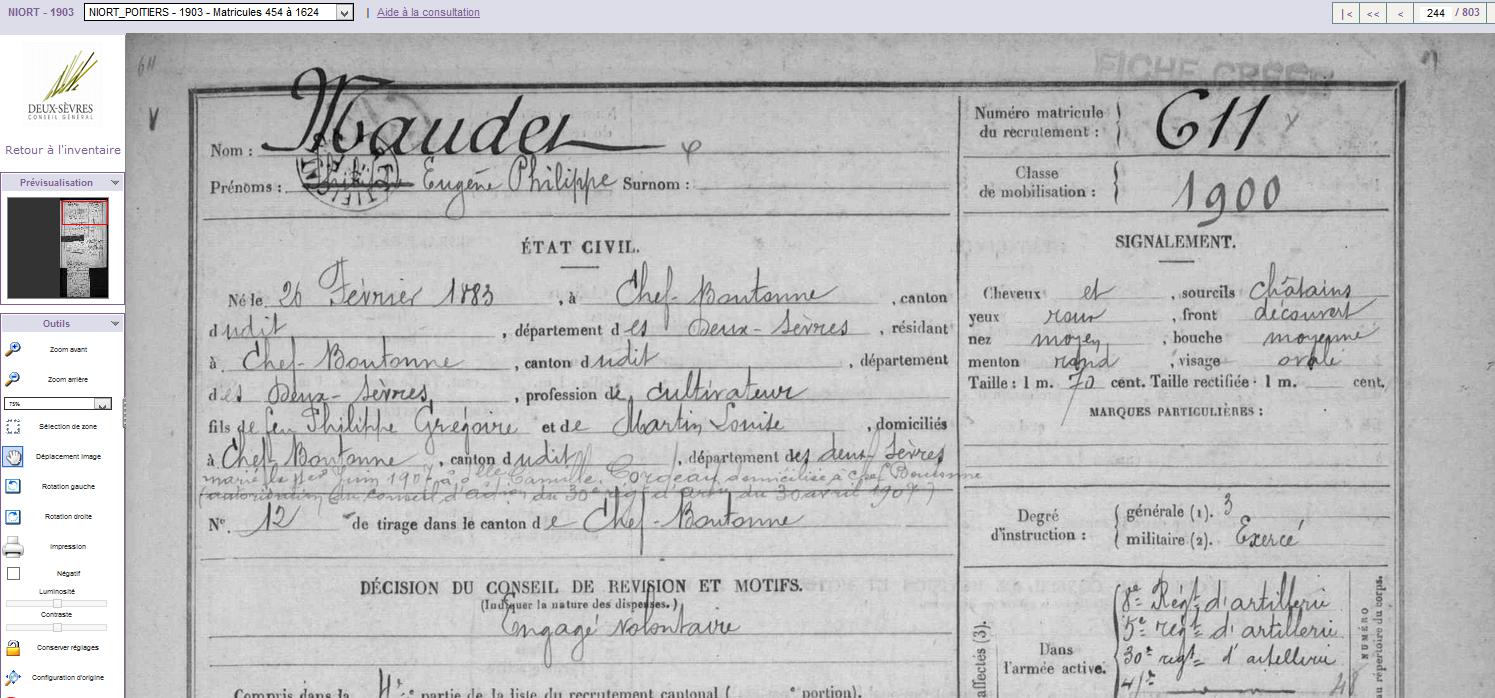 NIORT - 1903 NIORT_POITIERS - 1903 - Matricules 454 à 1624 | Aide à la consultation |< << < 244 / 803
DEUX-SÈVRES
CONSEIL GÉNÉRAL
Retour à l'inventaire
Prévisualisation
Outils
Zoom avant
Zoom arrière
75%
Sélection de zone
Déplacement image
Rotation gauche
Rotation droite
Impression
Négatif
Luminosité
Contraste
Conserver réglages
Configuration d'origine
611
FICHE CRÉÉE
V
Nom : Maudet
Prénoms : Eugène Philippe Surnom :
Numéro matricule du recrutement : 611
Classe de mobilisation : 1900
ÉTAT CIVIL.
Né le 26 Février 1883, à Chef-Boutonne, canton
dudit, département des Deux-Sèvres, résidant
à Chef-Boutonne, canton dudit, département
des Deux-Sèvres, profession de cultivateur
fils de feu Philippe Grégoire et de Martin Louise, domiciliés
à Chef Boutonne, canton dudit, département des deux Sèvres
marié le 1er Juin 1907 à Dlle Camille domiciliée à Chef Boutonne
(autorisation du conseil d'adon du 30e régt d'artie du 30 avril 1907)
N° 12 de tirage dans le canton de Chef-Boutonne
SIGNALEMENT.
Cheveux et, sourcils châtains
yeux roux, front découvert
nez moyen, bouche moyenne
menton rond, visage ovale
Taille : 1 m. 70 cent. Taille rectifiée : 1 m. cent.
MARQUES PARTICULIÈRES :
Degré d'instruction : générale (1). 3
militaire (2). Exercé
DÉCISION DU CONSEIL DE REVISION ET MOTIFS.
(Indiquer la nature des dispenses.)
Engagé Volontaire
Compris dans la partie de la liste du recrutement cantonal ( ° portion).
affectés (3).
Dans l'armée active.
Régt d'artillerie
5e régt d'artillerie
30e régt d'artillerie
NUMÉRO
répertoire du corps.